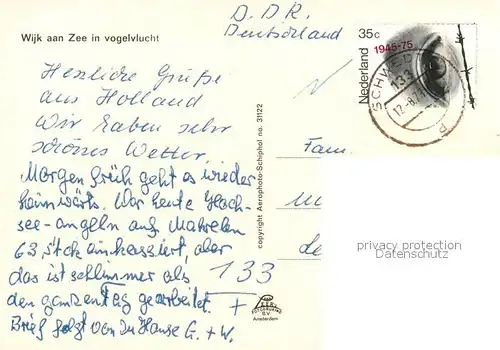 Wijk aan Zee in vogelvlucht
D. D. R.
Deutschland
35c
1945-75
Nederland
SCHWEDT
133
12-8
Herzliche Grüße
aus Holland
Wir haben sehr
schönes Wetter.
Morgen früh geht es wieder
heimwärts. War heute Hoch-
see-angeln auf Makrelen
63 Stck einkassiert, aber
das ist schlimmer als
den ganzen Tag gearbeitet. +
Brief folgt von zu Hause G. + W.
133
copyright Aerophoto-Schiphol no. 31122
Fam.
privacy protection
Dartsnak
Amsterdam